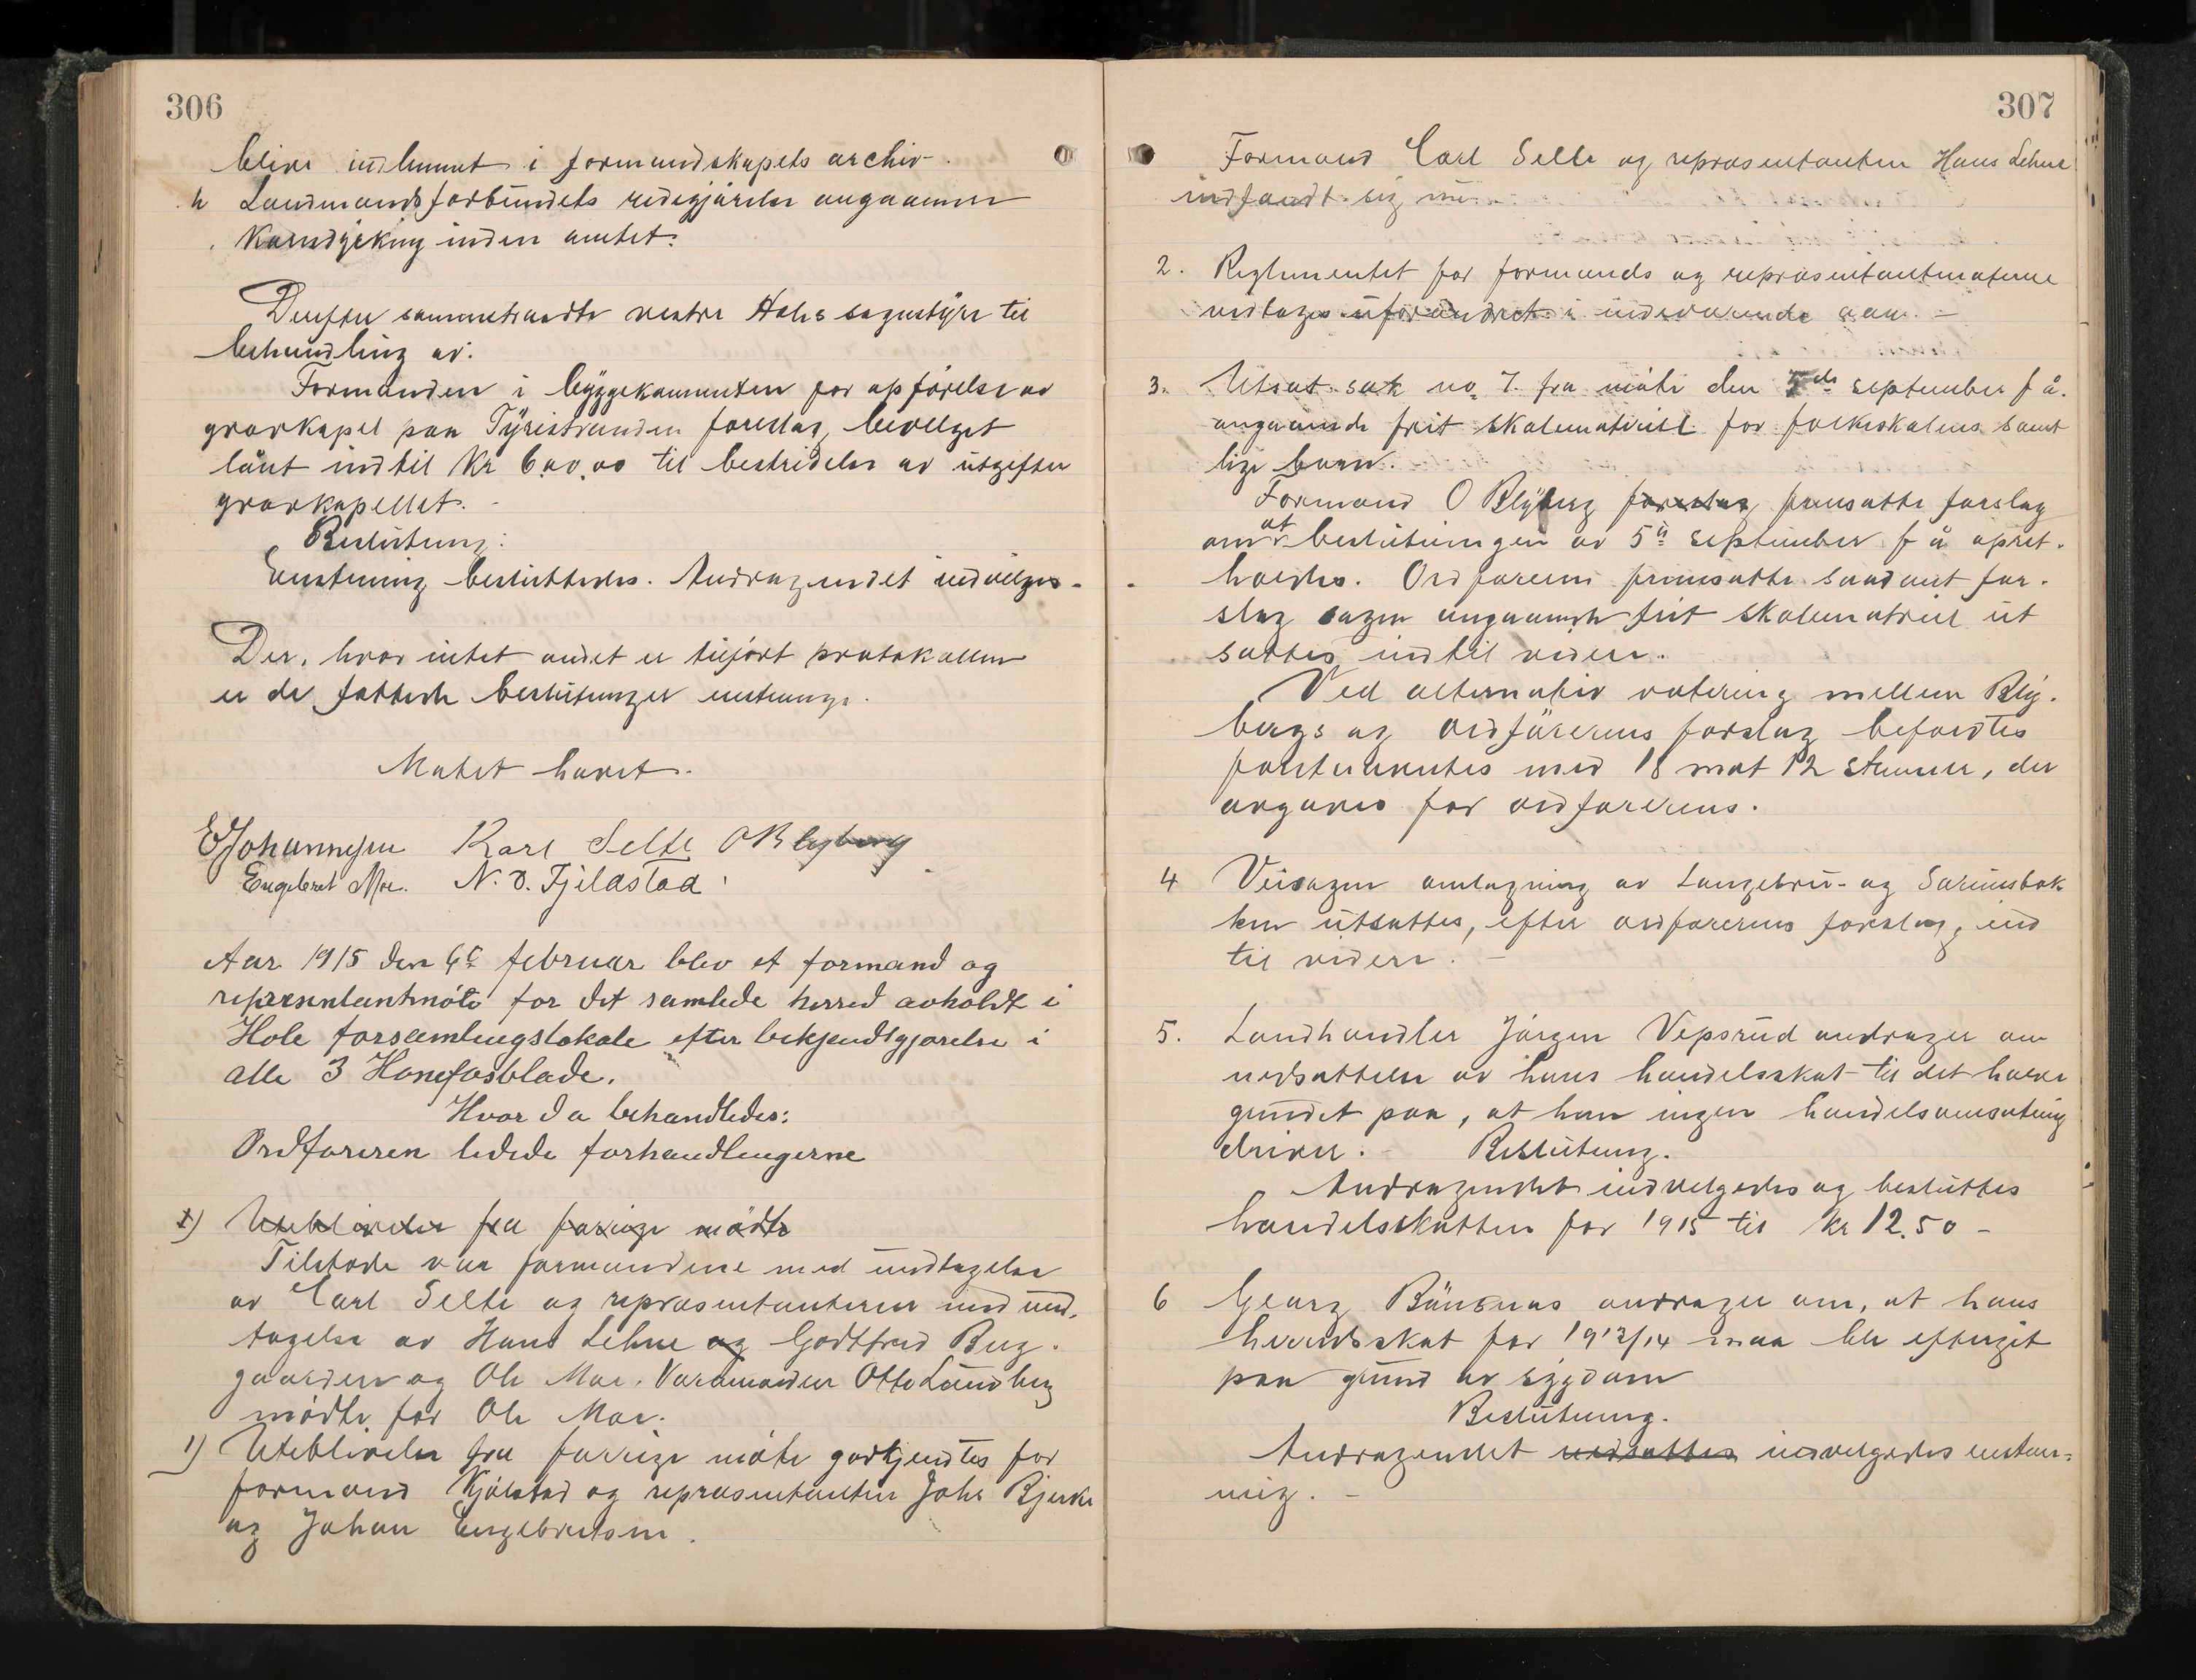 306
blive indlemmet i formandskapets archiv.
h Landmandsforbundets redegjørelse angaaende
Korndyrking inden amtet.
Derefter sammentraadte vestre Hole sognestyre til
behandling av.
Formanden i byggekommiteen for opførelse av
gravkapel paa Tyristranden foreslag, bevilget
lånt indtil Kr 600,00 til bestridelse av utgifter
gravkapellet.
Beslutning:
Enstemmig besluttedes. Andragendet indvilges.
Der, hvor intet andet er tilført protokollen
er de fattede beslutninger enstemmige.
Møtet hævet.
E Johannesen Karl Selte O Blyberg
Engebret Moe. N. O. Fjeldstad
Aar 1915 den 6te februar blev et formand og
representantmöte for det samlede herred avholdt i
Hole forsamlingslokale efter bekjendtgjørelse i
alle 3 Hønefosblade.
Hvor da behandledes:
Ordføreren ledede forhandlingerne
1) Uteblivelse fra forrige mödte
Tilstede var formændene med undtagelse
av Carl Selte og repræsentanterne med und-
tagelse av Hans Lehne og Godtfred Berg-
gaarden og Ole Moe. Varamanden Otto Lundberg
mødte for Ole Moe.
1) Uteblivelse fra forrige møte godkjendtes for
formand Kjölstad og repræsentanten Johs Bjerke
og Johan Engebretsen.
307
Formand Carl Selte og repræsentanten Hans Lehne
indfandt sig nu.
2. Reglementet for formands og repræsentantmøterne
vedtages uforandret i indeværende aar. -
3. Utsat sak no 7 fra møte den 5te september f å.
angaaende frit skolemateriel for folkeskolens samt
lige barn.
Formand O Blyberg foreslag fremsatte forslag
om at beslutningen av 5te september f å opret-
holdes. Ordføreren fremsatte saadant for-
slag sagen angaaende frit skolematriel ut
sættes indtil videre.
Ved alternativ votering mellem Bly-
bergs og Ordførerens forslag befordtes
førstnævntes med 18 mot 12 stemmer, der
avgaves for ordførerens.
4 Veisagen omlægning av Langebru- og Sørumsbak
ken utsættes, efter ordførerens forslag, ind
til videre. -
5. Landhandler Jørgen Vepsrud andrager om
nedsættelse av hans handelsskat til det halve
grundet paa, at han ingen handelsomsætning
driver. - Beslutning.
Andragendet indvilgedes og besluttes
handelsskatten for 1915 til kr 12.50 -
6 Georg Bönsnæs andrager om, at hans
herredsskat for 1913/14 maa bli eftergit
paa grund av sygdom
Beslutning.
Andragendet nedsattes indvilgedes enstem-
mig. -